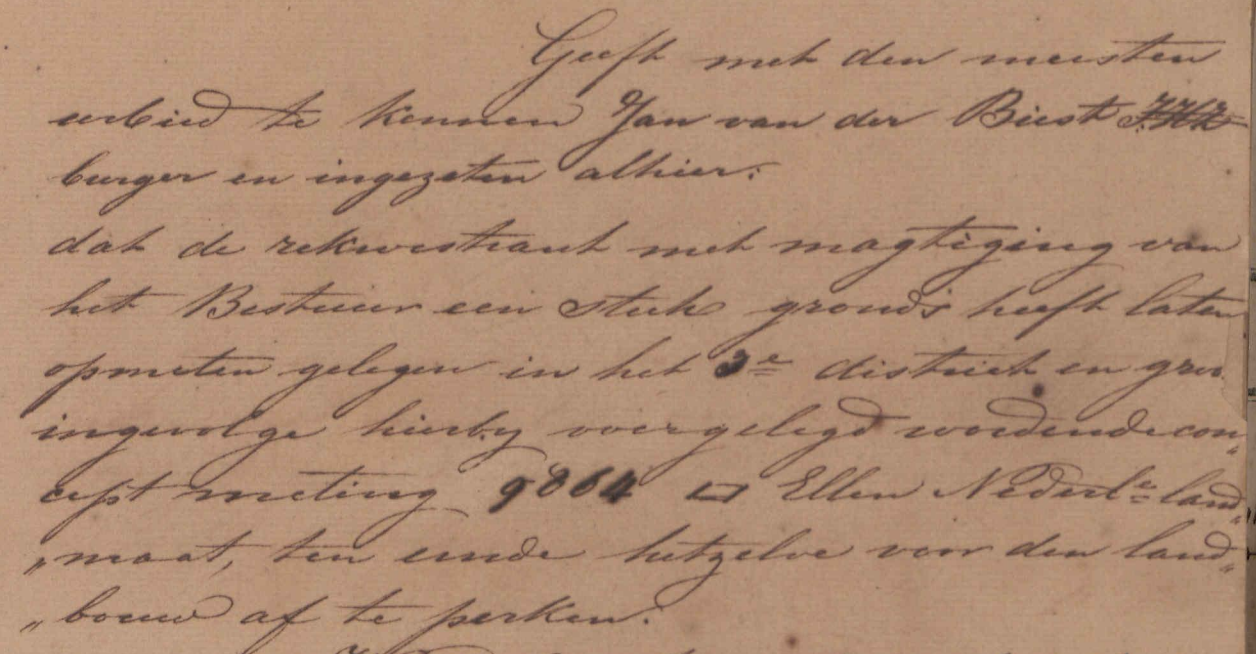 Geeft met den meesten
eerbied te kennen Jan van der Biest
burger en ingezeten alhier:
dat de rekwestrant met magtiging van
het Bestuur een stuk gronds heeft laten
opmeten gelegen in het 3e district en groo
ingevolge hierby voorgelegd wordende con„
cept meting 9864 □ Ellen Nederle land„
„maat, ten einde hetzelve voor den land„
„bouw af te perken.